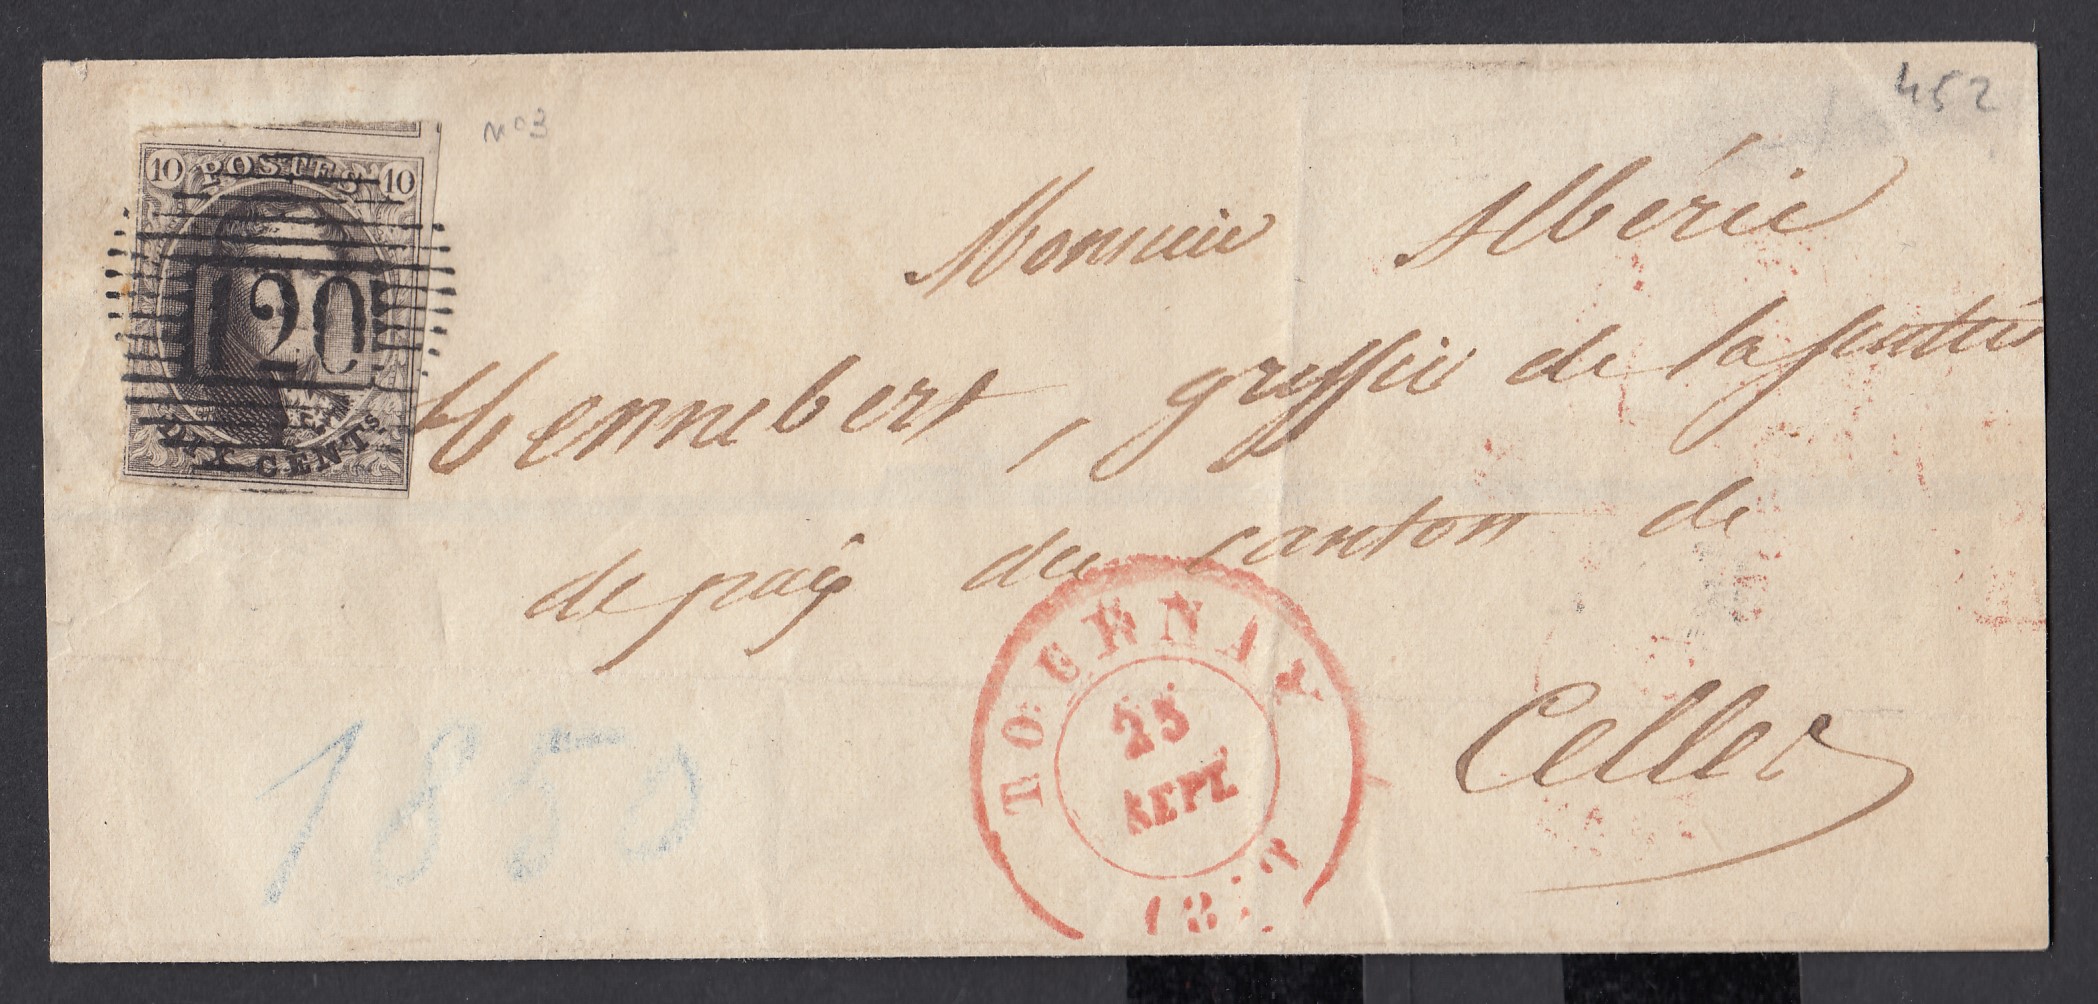 452
nº3
10 POSTES 10
120
DIX CENTS.
Monsieur Albéric
Hennebert, greffier de la justice
de paix du canton de
Celles
TOURNAY
25
SEPT
1850